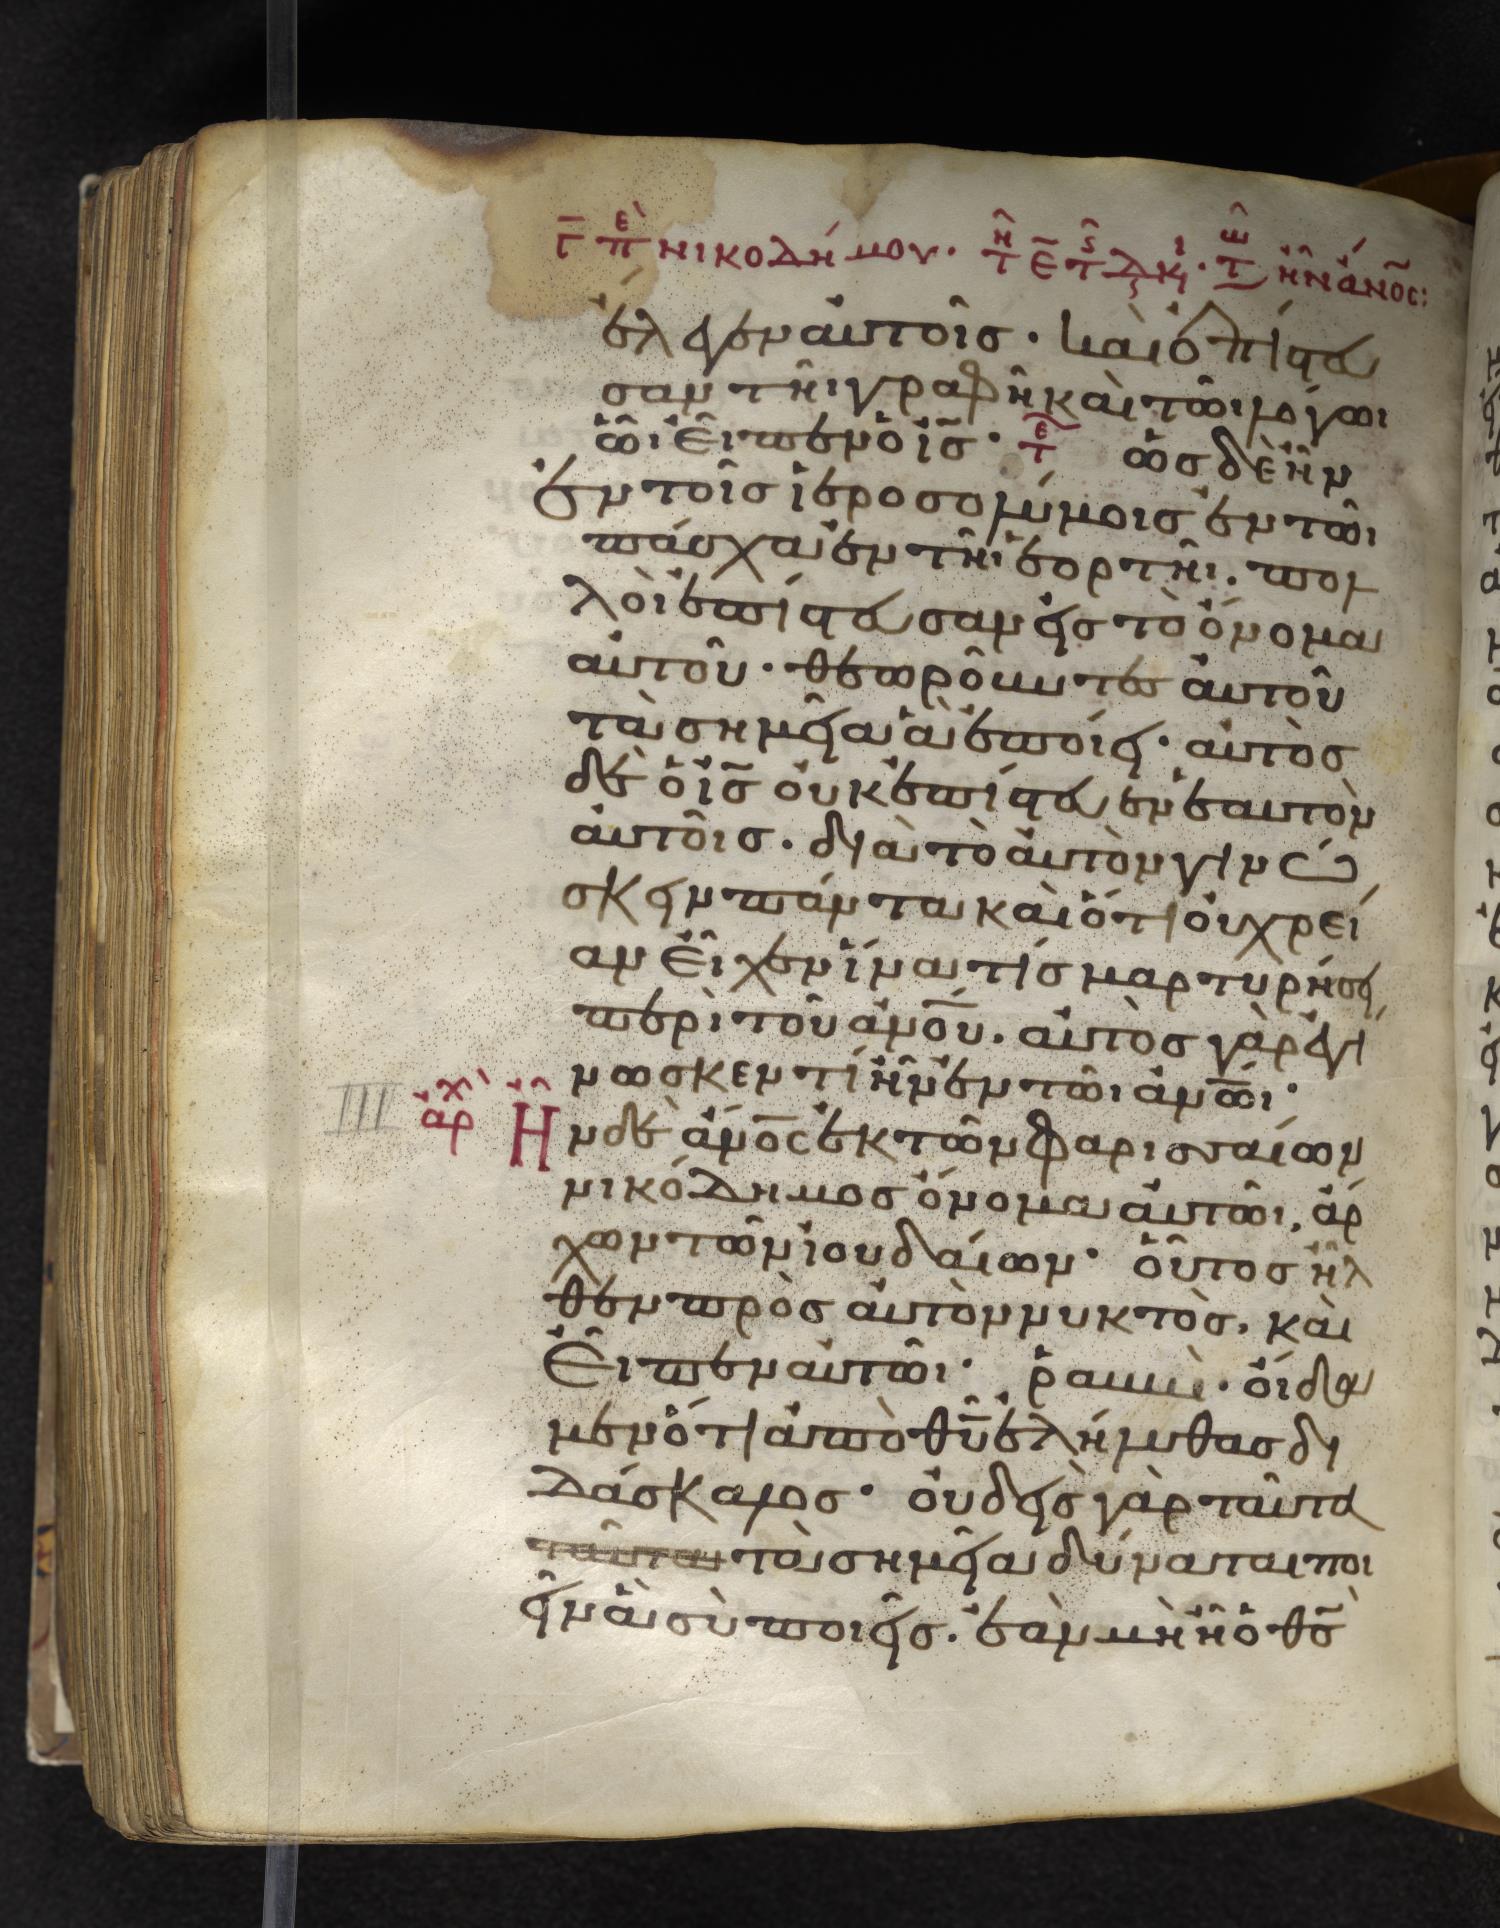 Γ ΠΕ ΝΙΚΟΔΉΜΟΥ· τῆ ε̄ τ̑ς διακι· τῶ ἦν ἄν̅ο̅ς:
ἔλεγεν αὐτοῖσ· καὶ ἐπίστευ
σαν τῆι γραφῆ καὶ τῶι λόγωι
ὧι εἶπεν ὁ ι̅σ̅· τε ὡσ δὲ ἦν
ἐν τοῖσ ἱεροσολύμοισ ἐν τῶι
πάσχα ἐν τῆι ἑορτῆι. πολ
λοὶ ἐπίστευσαν εἰσ τὸ ὄνομα
αὐτοῦ· θεωροῦντεσ αὐτοῦ
τὰ σημεῖα ἃ ἐποίει· αὐτὸσ
δὲ ὁ ι̅σ̅ οὐκ ἐπίστευεν ἑαυτὸν
αὐτοῖσ. διὰ τὸ αὐτὸν γινώ
σκειν πάντα καὶ ὅτι οὐ χρεί
αν εἶχεν ἵνα τίσ μαρτυρήσει
περὶ τοῦ α̅ν̅ο̅υ̅. αὐτὸσ γὰρ ἐγί
νωσκεν τί ἦν ἐν τῶι α̅ν̅ω̅ι·
ἀρχ Ἦν δὲ α̅ν̅ο̅ς ἐκ τῶν φαρισσαίων
νικόδημοσ ὄνομα αὐτῶι, ἄρ
χων τῶν ἰουδαίων· οὗτοσ ἦλ
θεν πρὸσ αὐτὸν νυκτὸσ. καὶ
εἶπεν αὐτῶι· ῥαββὶ· οἴδα
μεν ὅτι ἀπὸ θ̅υ̅ ἐλήλυθασ δι
δάσκαλοσ· οὐδεὶσ γὰρ ταῦτα
ταῦτα τὰ σημεῖα δύναται ποι
εῖν ἃ σὺ ποιεῖσ. ἐὰν μὴ ἦ ὁ θ̅σ̅